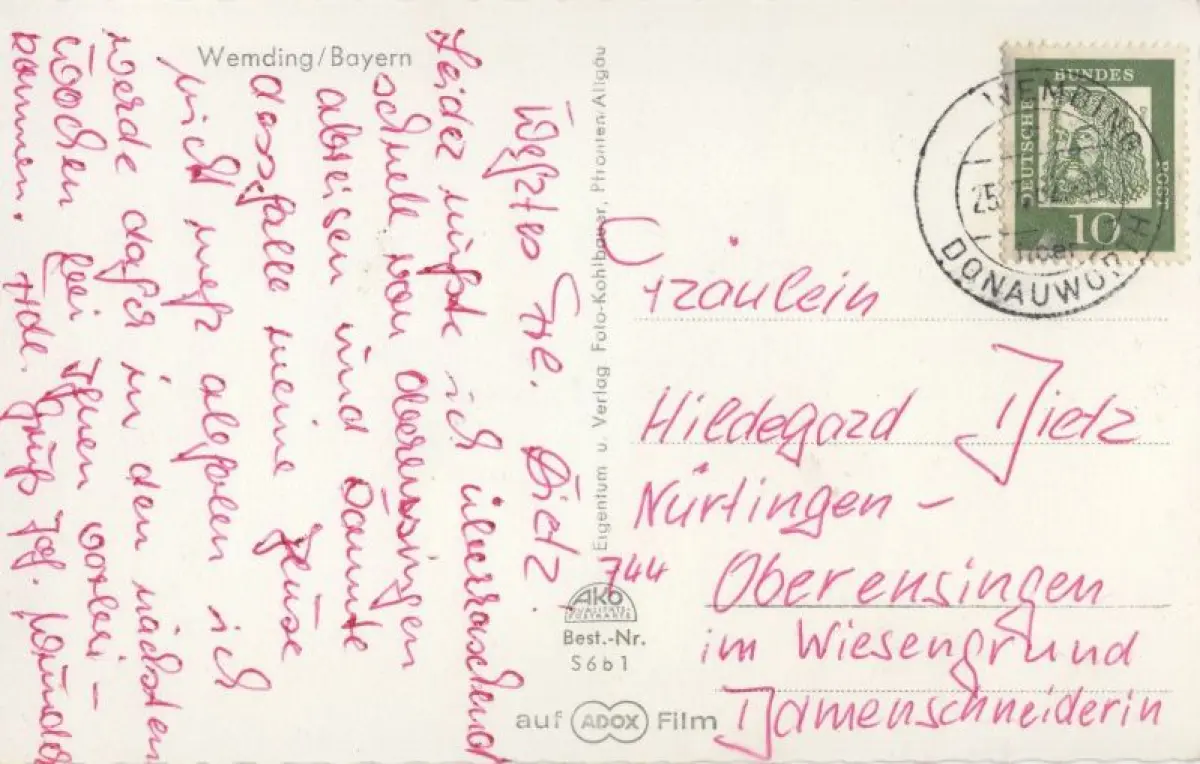 Wemding/Bayern
Wehrtes Frl. Dietz.
Leider mußte ich überraschend
schnell von Oberensingen
abreisen und konnte
dessfalls meine Bluse
nicht mehr abholen ich
werde dafür in den nächsten
Wochen bei Ihnen vorbei-
kommen. Hdl. Gruß
Eigentum u. Verlag Foto-Kohlbauer, Pfronten/Allgäu
AKO
QUALITÄTS-
POSTKARTE
Best.-Nr.
S6b1
auf ADOX Film
DEUTSCHE
BUNDES
POST
10
WEMDING
25.
DONAUWÖRTH
Fräulein
Hildegard Dietz
Nürtingen -
744 Oberensingen
im Wiesengrund
Damenschneiderin